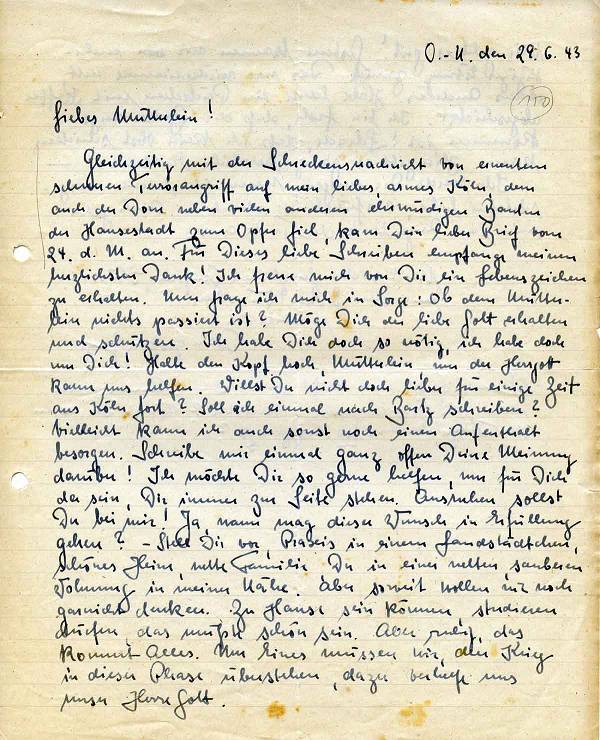 O.-U. den 29. 6. 43
150
Liebes Mütterlein!
Gleichzeitig mit der Schreckensnachricht von erneutem
schweren Terrorangriff auf mein liebes, armes Köln, dem
auch der Dom neben vielen anderen ehrwürdigen Bauten
der Hansestadt zum Opfer fiel, kam Dein lieber Brief vom
24. d. M. an. Für Dieses liebe Schreiben empfange meinen
herzlichsten Dank! Ich freue mich von Dir ein Lebenszeichen
zu erhalten. Nun frage ich mich in Sorge: Ob dem Mütter-
lein nichts passiert ist? Möge Dich der liebe Gott erhalten
und schützen. Ich habe Dich doch so nötig, ich habe doch
nur Dich! Halte den Kopf hoch, Mütterlein, nur der Herrgott
kann uns helfen. Willst Du nicht doch lieber für einige Zeit
aus Köln fort? Soll ich einmal nach schreiben?
Vielleicht kann ich auch sonst noch einen Aufenthalt
besorgen. Schreibe mir einmal ganz offen Deine Meinung
darüber! Ich möchte Dir so gerne helfen, nur für Dich
da sein, Dir immer zur Seite stehen. Ausruhen sollst
Du bei mir! Ja, wann mag dieser Wunsch in Erfüllung
gehen? - Stell Dir vor, Praxis in einem Landstädtchen,
schönes Heim, nette Familie, Du in einer netten sauberen
Wohnung in meiner Nähe. Aber soweit wollen wir noch
garnicht denken. Zu Hause sein können, studieren
dürfen, das müßte schön sein. Aber ruhig, das
kommt Alles. Nur Eines müssen wir, den Krieg
in dieser Phase überstehen, dazu verhelfe uns
unser Herr Gott.